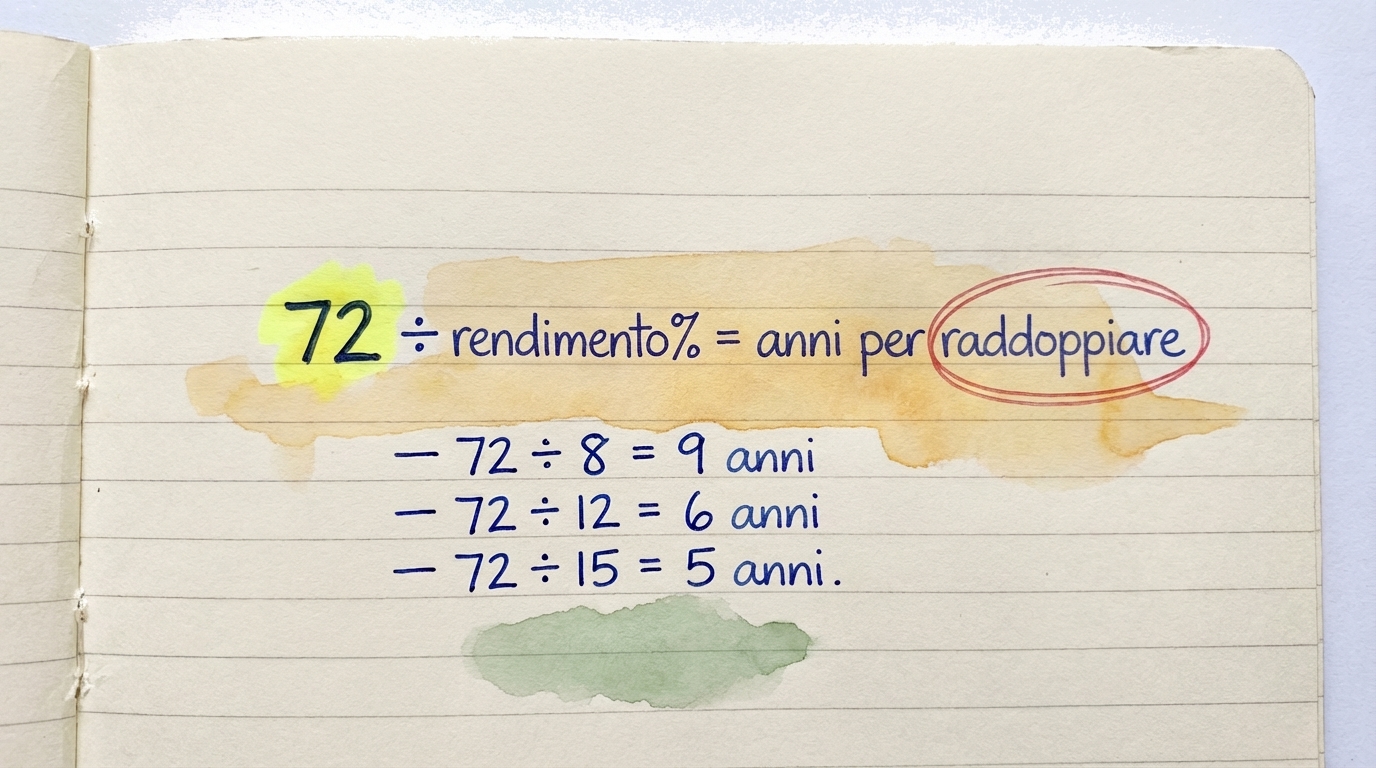 72 ÷ rendimento% = anni per raddoppiare
— 72 ÷ 8 = 9 anni
— 72 ÷ 12 = 6 anni
— 72 ÷ 15 = 5 anni.